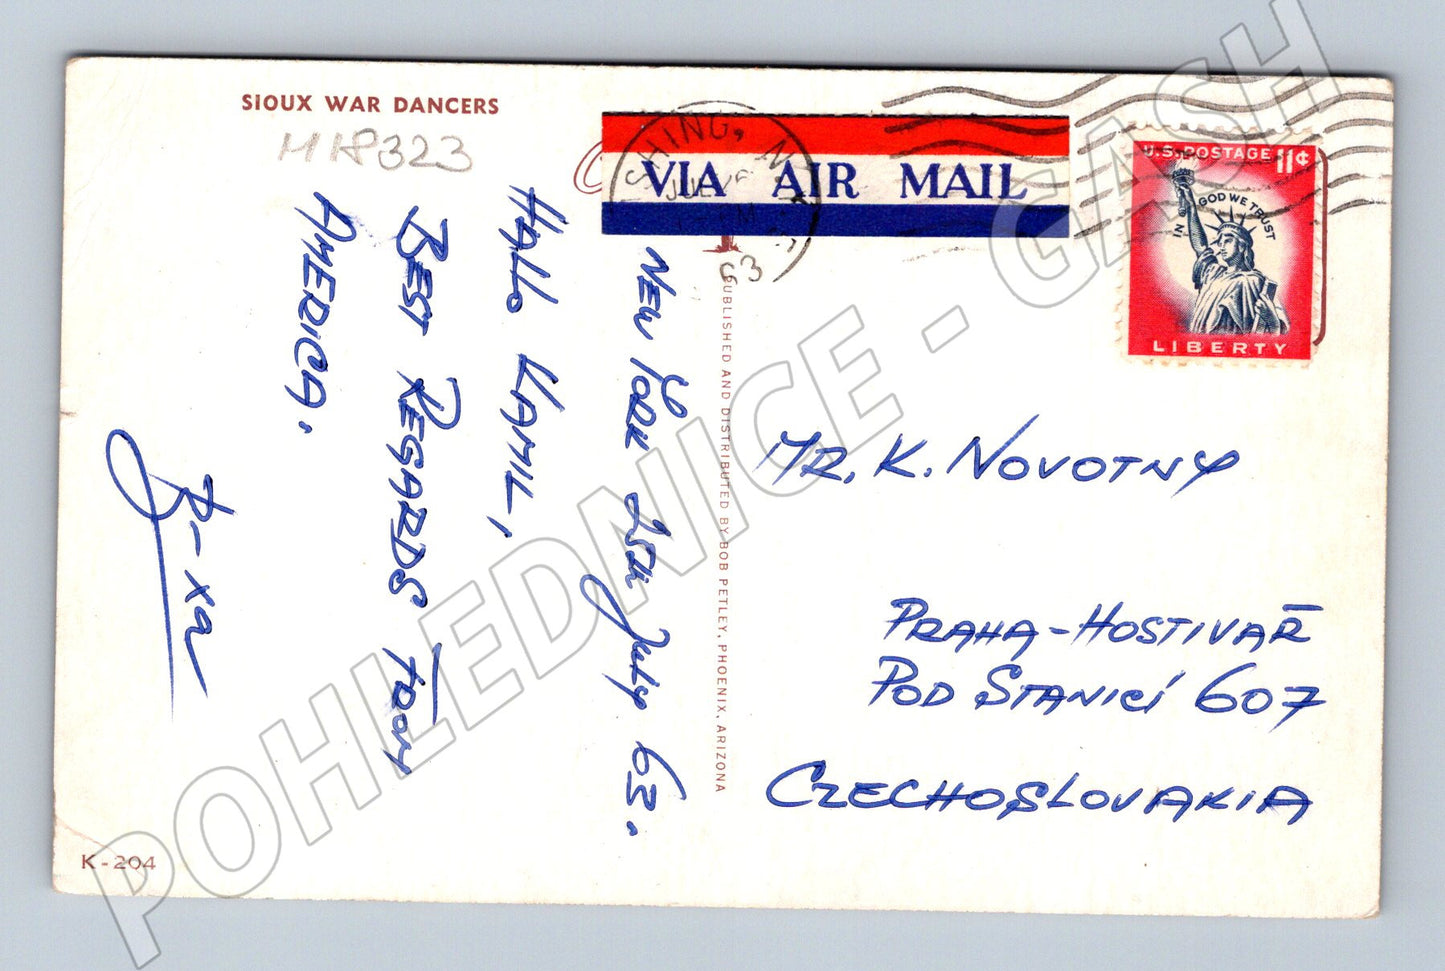 SIOUX WAR DANCERS
M 18323
VIA AIR MAIL
SHING, N.Y.
63
U.S. POSTAGE 11¢
IN GOD WE TRUST
LIBERTY
NEW YORK 25th July 63.
HALLO KAMIL,
BEST REGARDS FROM
AMERICA.
PUBLISHED AND DISTRIBUTED BY BOB PETLEY, PHOENIX, ARIZONA
MR. K. NOVOTNY
PRAHA-HOSTIVAŘ
POD STANICÍ 607
CZECHOSLOVAKIA
K-204
POHLEDNICE - GASH